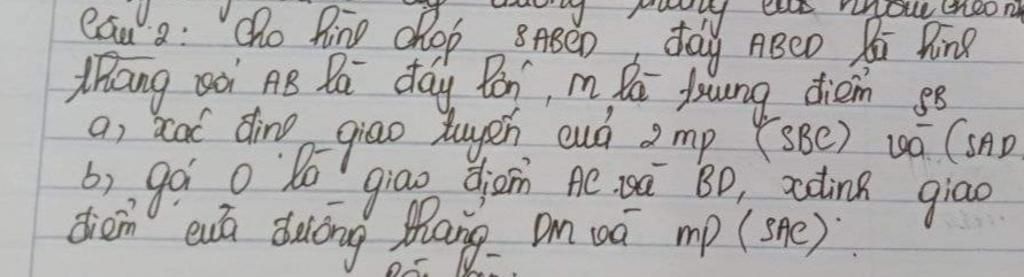 Câu 2: Cho hình chóp SABCD, đáy ABCD là hình
thang với AB là đáy lớn, M là trung điểm SB
a, xác định giao tuyến của 2 mp (SBC) và (SAD
b, gọi O là giao điểm AC và BD, xđịnh giao
điểm của đường thẳng DM và mp (SAC).